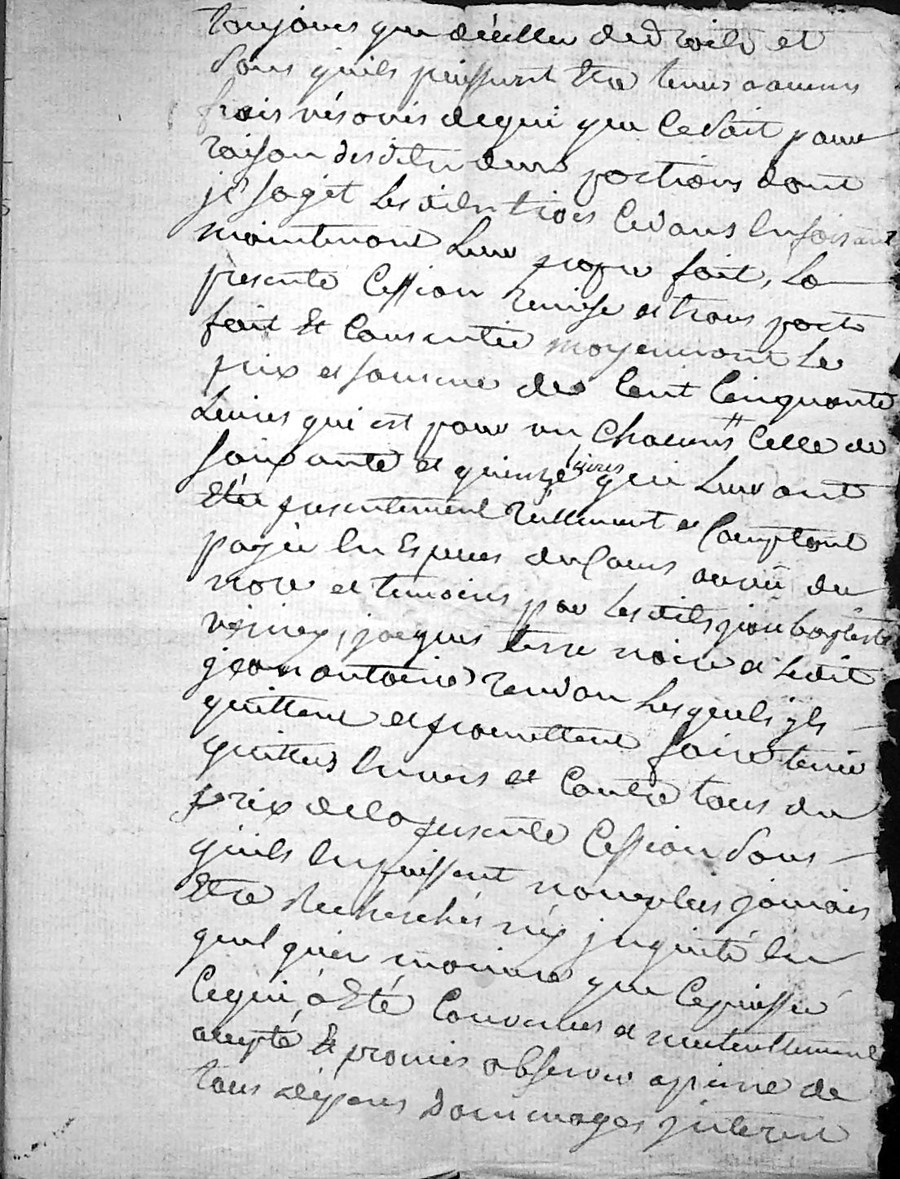 toujours que d'icelles de droits et
sans quils puissent etre tenus a aucuns
frais nÿ a vis de qui que ce soit pour
raison desdites deux portions dont
jl sagit les dits trois cedans en faisant
maintenant leur propre fait, la
presente Cession remise et transporte
fait et Consentie moyennant le
prix et somme de Cent Cinquante
Livres qui est pour un chacuns celle de
soixante et quinze livres que leur ont
Eté presentement réellement et Comptant
payée en Especes du Cours au vû du
nore et temoins par lesdits jean baptiste
jacques terre noire et ledit
jean antoine rendon lesquels jls
quittent et promettent faire tenir
quittes envers et Contre tous du
prix de la presente Cession sans
quils en puissent non plus jamais
Etre Recherchés nÿ jnquieté en
quel quer maniere que ce puisse
Ce qui a Eté Convenues et mutuellement
accepté et promis observer a peine de
tous depens dommages jnterest